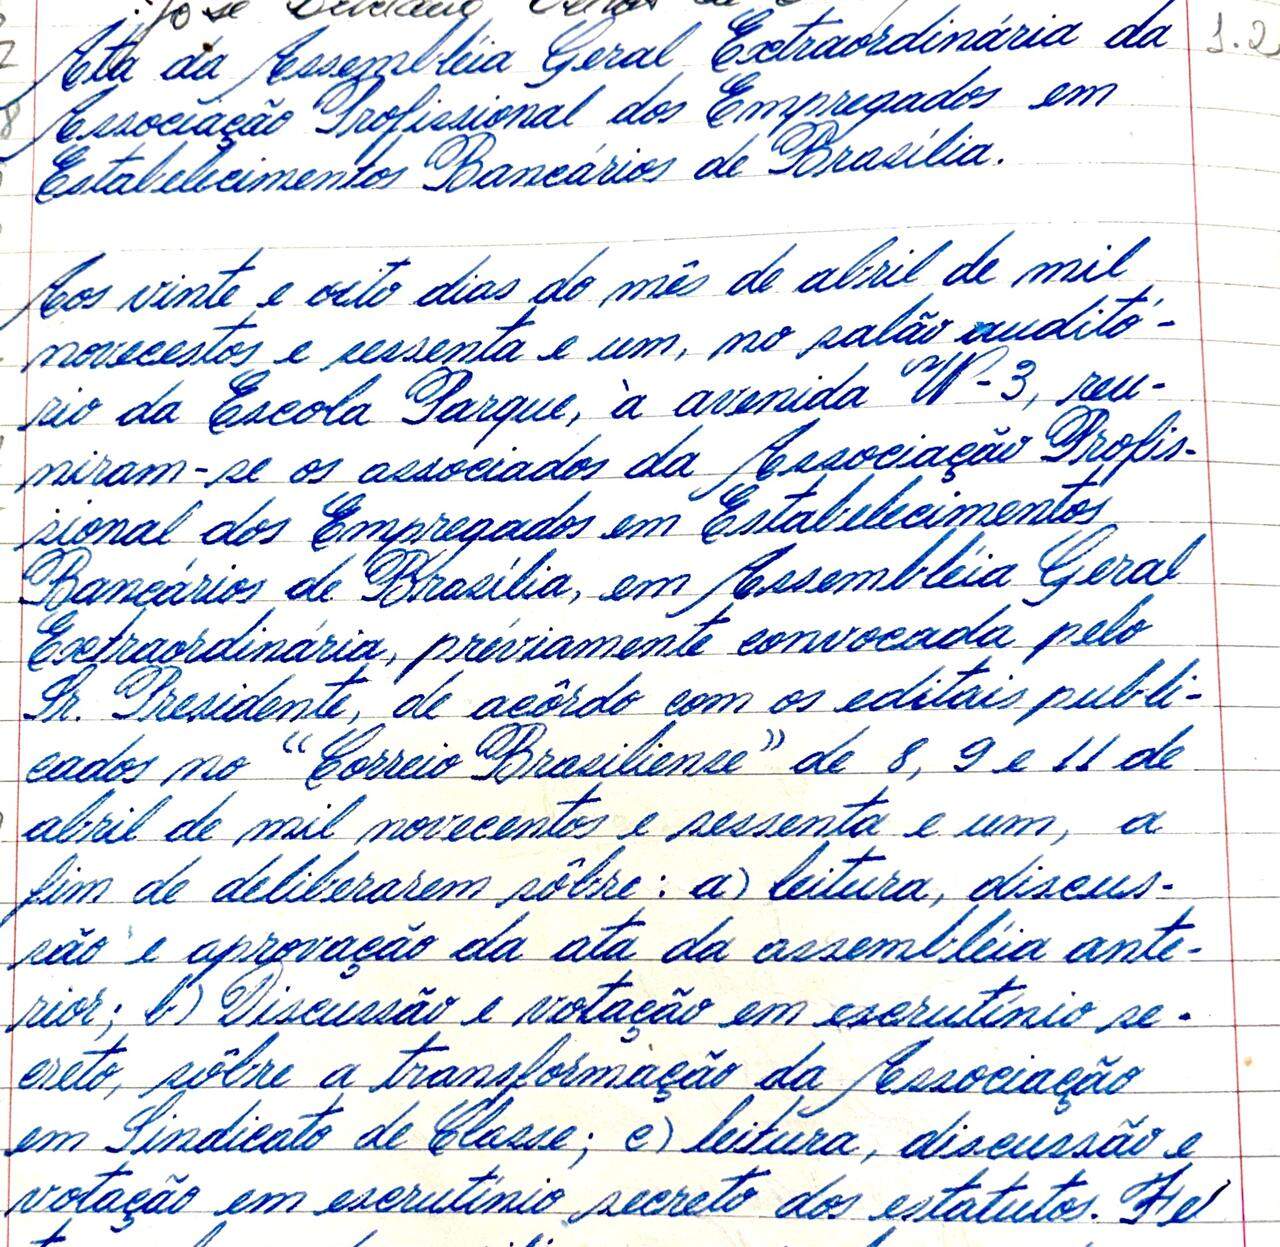 José
Ata da Assembléia Geral Extraordinária da
Associação Profissional dos Empregados em
Estabelecimentos Bancários de Brasília.
Aos vinte e oito dias do mês de abril de mil
novecestos e sessenta e um, no salão auditó-
rio da Escola Parque, à avenida W-3, reu-
niram-se os associados da Associação Profis-
sional dos Empregados em Estabelecimentos
Bancários de Brasília, em Assembléia Geral
Extraordinária, préviamente convocada pelo
Sr. Presidente, de acôrdo com os editais publi-
cados no "Correio Brasiliense" de 8, 9 e 11 de
abril de mil novecentos e sessenta e um, a
fim de deliberarem sôbre: a) leitura, discus-
são e aprovação da ata da assembléia ante-
rior; b) Discussão e votação em escrutínio se-
creto, sôbre a transformação da Associação
em Sindicato de Classe; c) leitura, discussão e
votação em escrutínio secreto dos estatutos. Fe